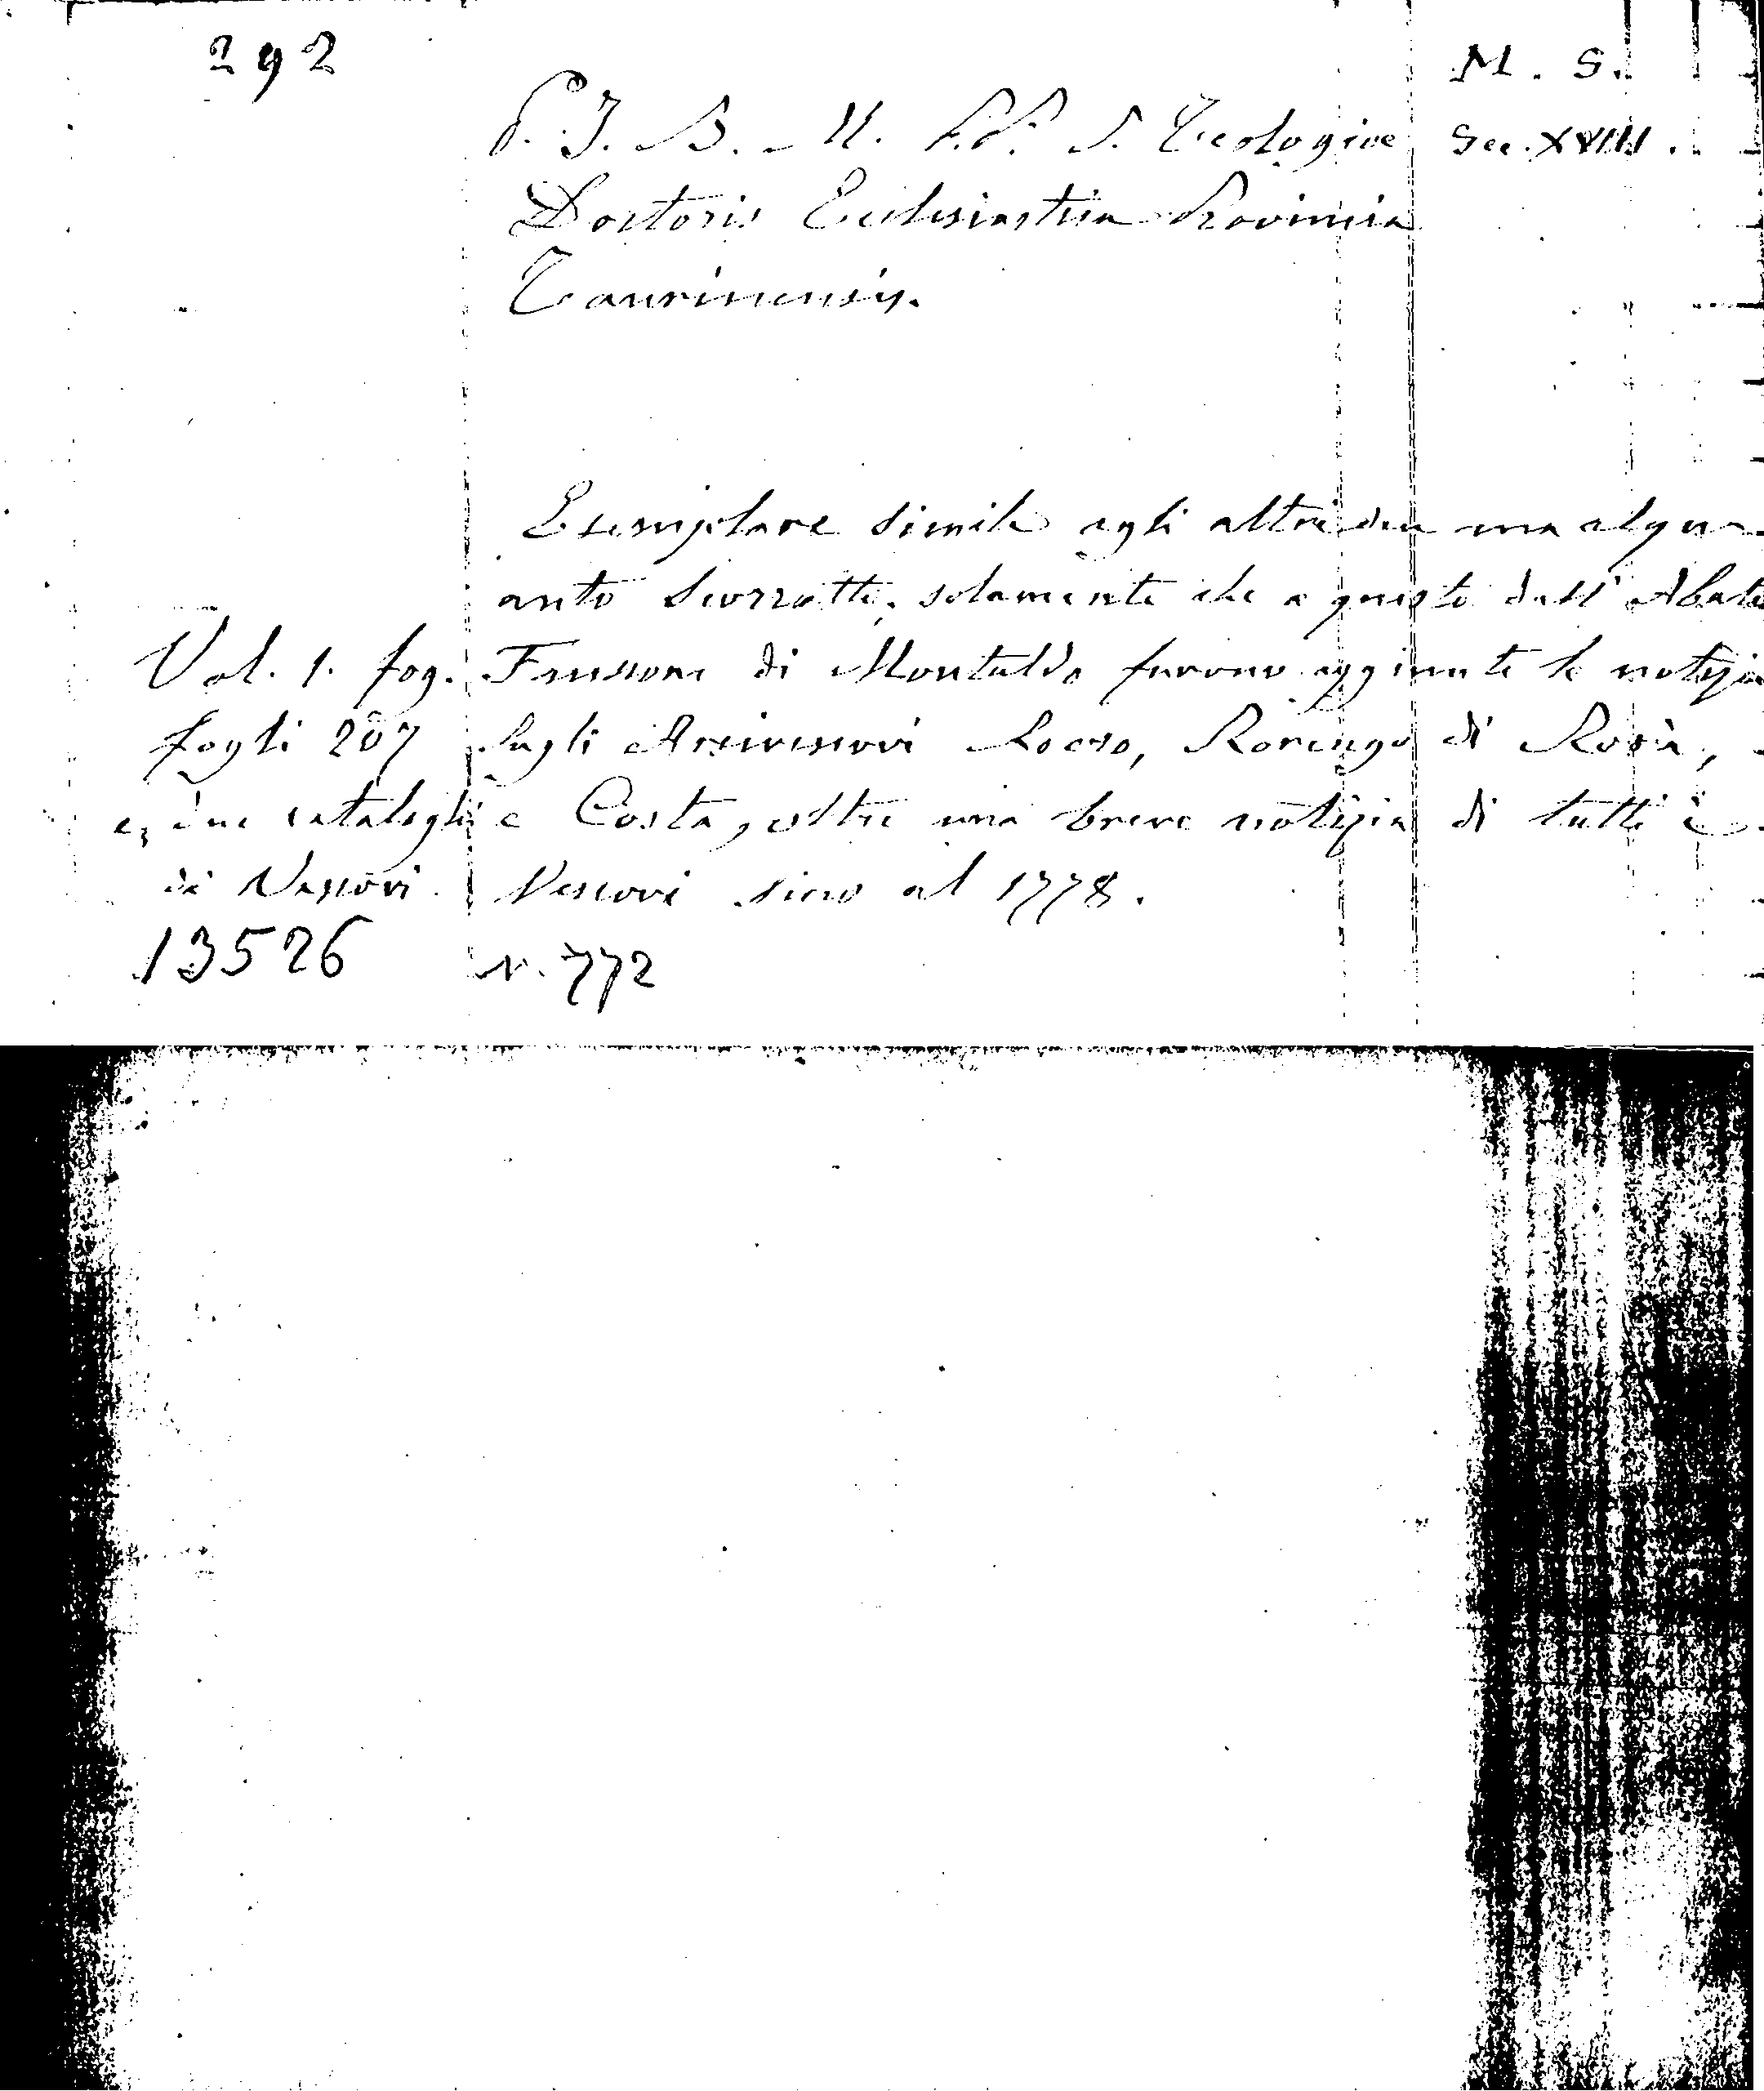 292
M. S.
P. J. B. M. P. P. S. Teologiae
Sec. XVIII.
Doctoris Ecclesiastica Provincia
Taurinensis.
Esemplare simile agli altri due ma alqu
anto scorretti, solamente che a questo dall' Abate
Vol. 1. fog. Frussone di Montaldo furono aggiunte le notizie
fogli 207 sugli Arcivescovi Rocro, Rorengo di Rorà,
e, due cataloghi e Costa, oltre una breve notizia di tutti i
di Vescovi. Vescovi sino al 1778.
13526 N. 772